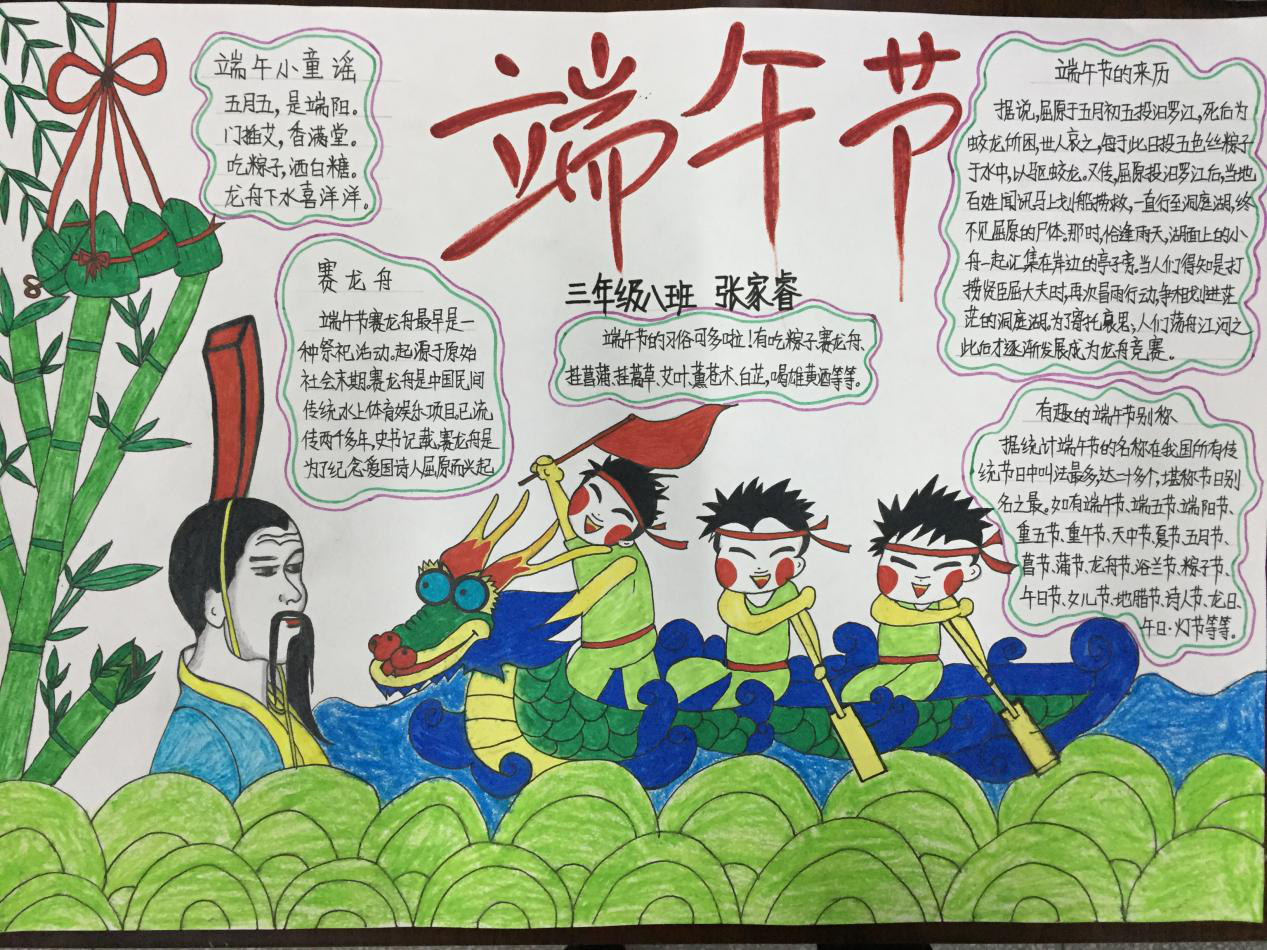 端午节
三年级八班 张家睿
端午小童谣
五月五,是端阳。
门插艾,香满堂。
吃粽子,洒白糖。
龙舟下水喜洋洋。
赛龙舟
端午节赛龙舟最早是一
种祭祀活动。起源于原始
社会末期。赛龙舟是中国民间
传统水上体育娱乐项目,已流
传两千多年,史书记载,赛龙舟是
为了纪念爱国诗人屈原而兴起
端午节的习俗可多啦!有吃粽子,赛龙舟、
挂菖蒲、挂蒿草、艾叶、薰苍术、白芷,喝雄黄酒等等。
端午节的来历
据说,屈原于五月初五投汨罗江,死后为
蛟龙所困,世人哀之,每于此日投五色丝粽子
于水中,以驱蛟龙。又传,屈原投汨罗江后,当地
百姓闻讯马上划船捞救,一直行至洞庭湖,终
不见屈原的尸体。那时,恰逢雨天,湖面上的小
舟一起汇集在岸边的亭子旁。当人们得知是打
捞贤臣屈大夫时,再次冒雨行动,争相划进茫
茫的洞庭湖。为寄托哀思,人们荡舟江河之
此后才逐渐发展成为龙舟竞赛。
有趣的端午节别称
据统计端午节的名称在我国所有传
统节日中叫法最多,达二十多个,堪称节日别
名之最。如有端午节、端五节、端阳节、
重五节、重午节、天中节、夏节、五月节、
菖节、蒲节、龙舟节、浴兰节、粽子节、
午日节、女儿节、地腊节、诗人节、龙日、
午日、灯节等等。